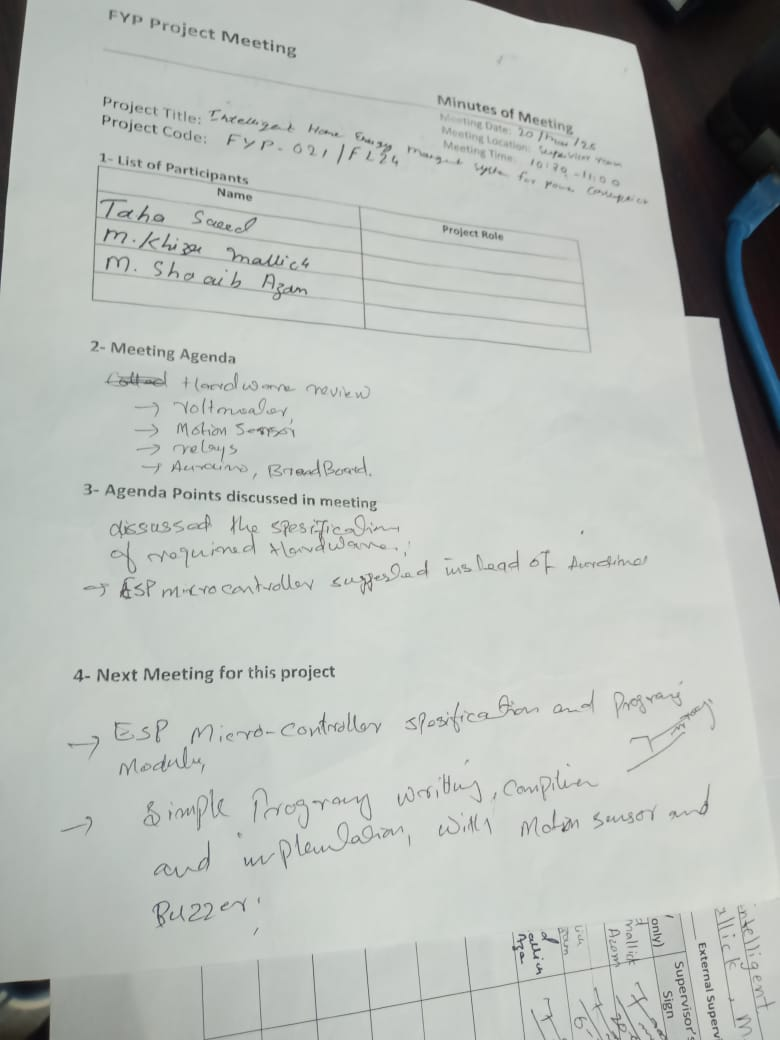 FYP Project Meeting
Minutes of Meeting
Meeting Date: 20/
Meeting Location: Supervisor room
Meeting Time: 10:30-11:00
Project Title: Intelligent Home Energy Mangmt System for power Consumption
Project Code: FYP-021/FL24
1- List of Participants
Name
Project Role
Taha Saeed
M. Khizar Mallick
M. Shoaib Azam
2- Meeting Agenda
Hardware review
→ Voltmeter,
→ Motion Sensor
→ relays
→ Aurdino, BreadBoard.
3- Agenda Points discussed in meeting
discussed the spesification
of required Hardware.
→ ESP microcontroller suggested instead of Aurdino
4- Next Meeting for this project
→ ESP Micro-Controller spesification and Program
Module,
→ Simple Program writting, compilien
and implentation, with Motion sensor and
Buzzer.
ntelligent
allick, M
External Superv
Supervisor's
Sign
only)
Mallick
Azam
allick
Aza